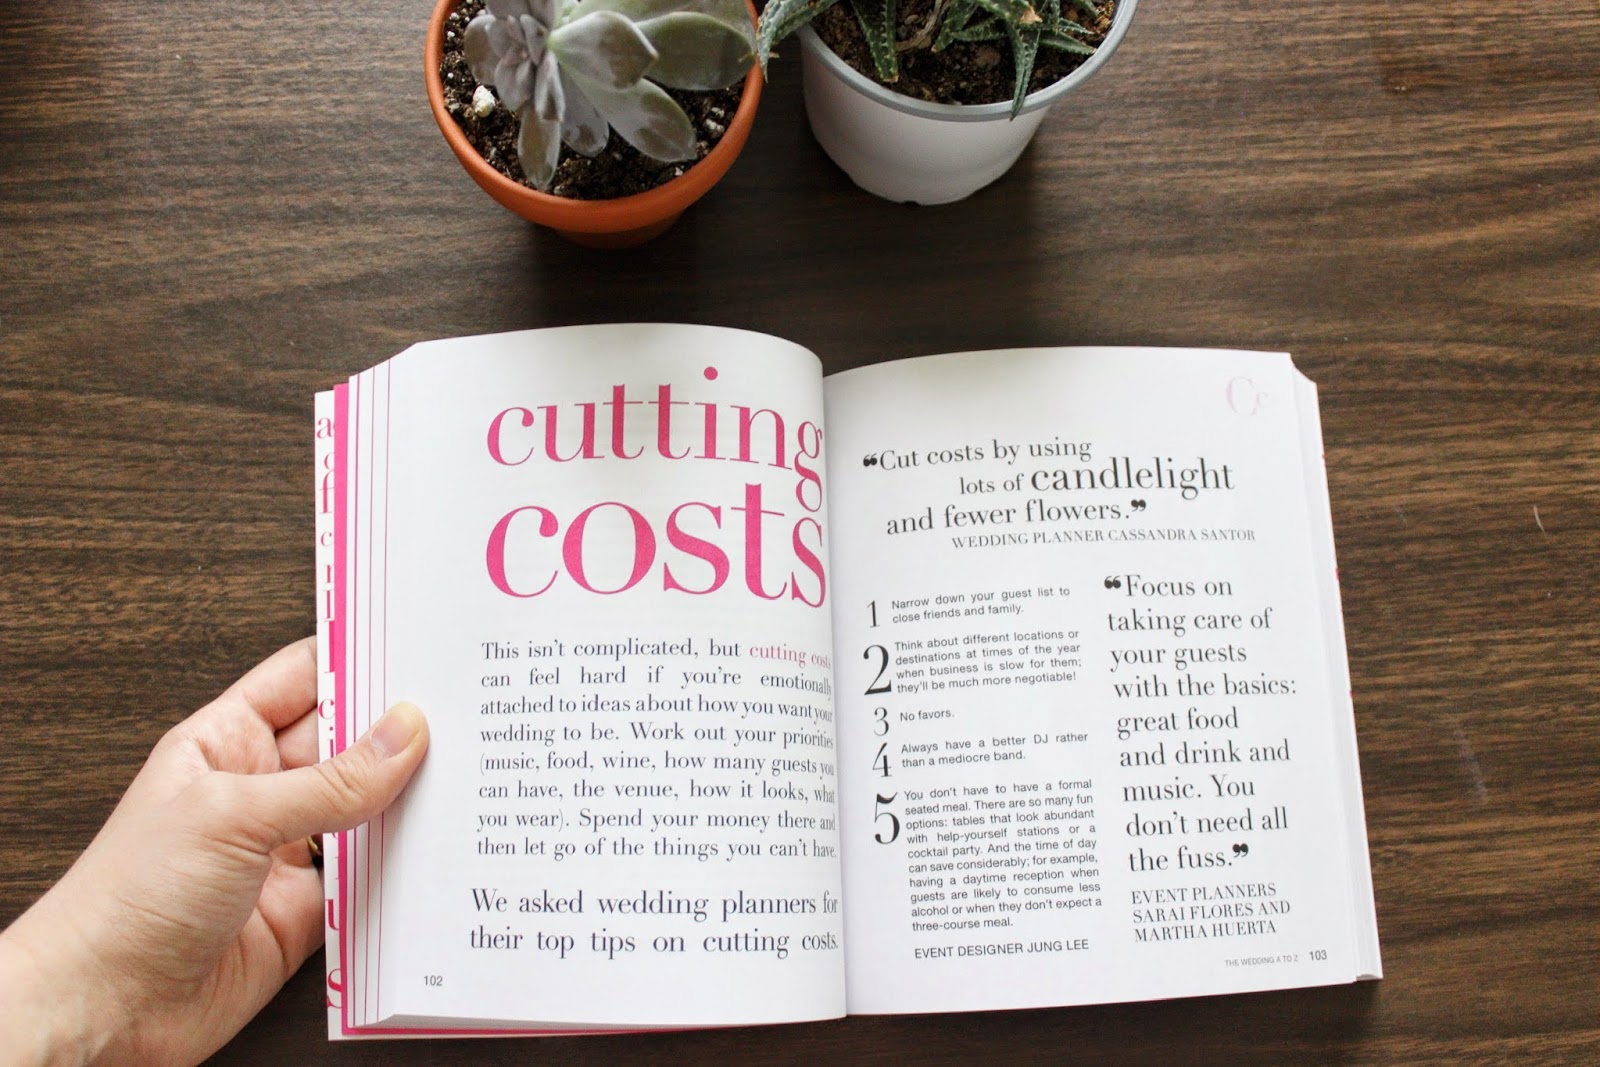 cutting
costs
This isn't complicated, but cutting costs
can feel hard if you're emotionally
attached to ideas about how you want your
wedding to be. Work out your priorities
(music, food, wine, how many guests you
can have, the venue, how it looks, what
you wear). Spend your money there and
then let go of the things you can't have.
We asked wedding planners for
their top tips on cutting costs.
102
Cc
❝Cut costs by using
lots of candlelight
and fewer flowers.❞
WEDDING PLANNER CASSANDRA SANTOR
1 Narrow down your guest list to
close friends and family.
2 Think about different locations or
destinations at times of the year
when business is slow for them;
they'll be much more negotiable!
3 No favors.
4 Always have a better DJ rather
than a mediocre band.
5 You don't have to have a formal
seated meal. There are so many fun
options: tables that look abundant
with help-yourself stations or a
cocktail party. And the time of day
can save considerably; for example,
having a daytime reception when
guests are likely to consume less
alcohol or when they don't expect a
three-course meal.
EVENT DESIGNER JUNG LEE
❝Focus on
taking care of
your guests
with the basics:
great food
and drink and
music. You
don't need all
the fuss.❞
EVENT PLANNERS
SARAI FLORES AND
MARTHA HUERTA
THE WEDDING A TO Z 103